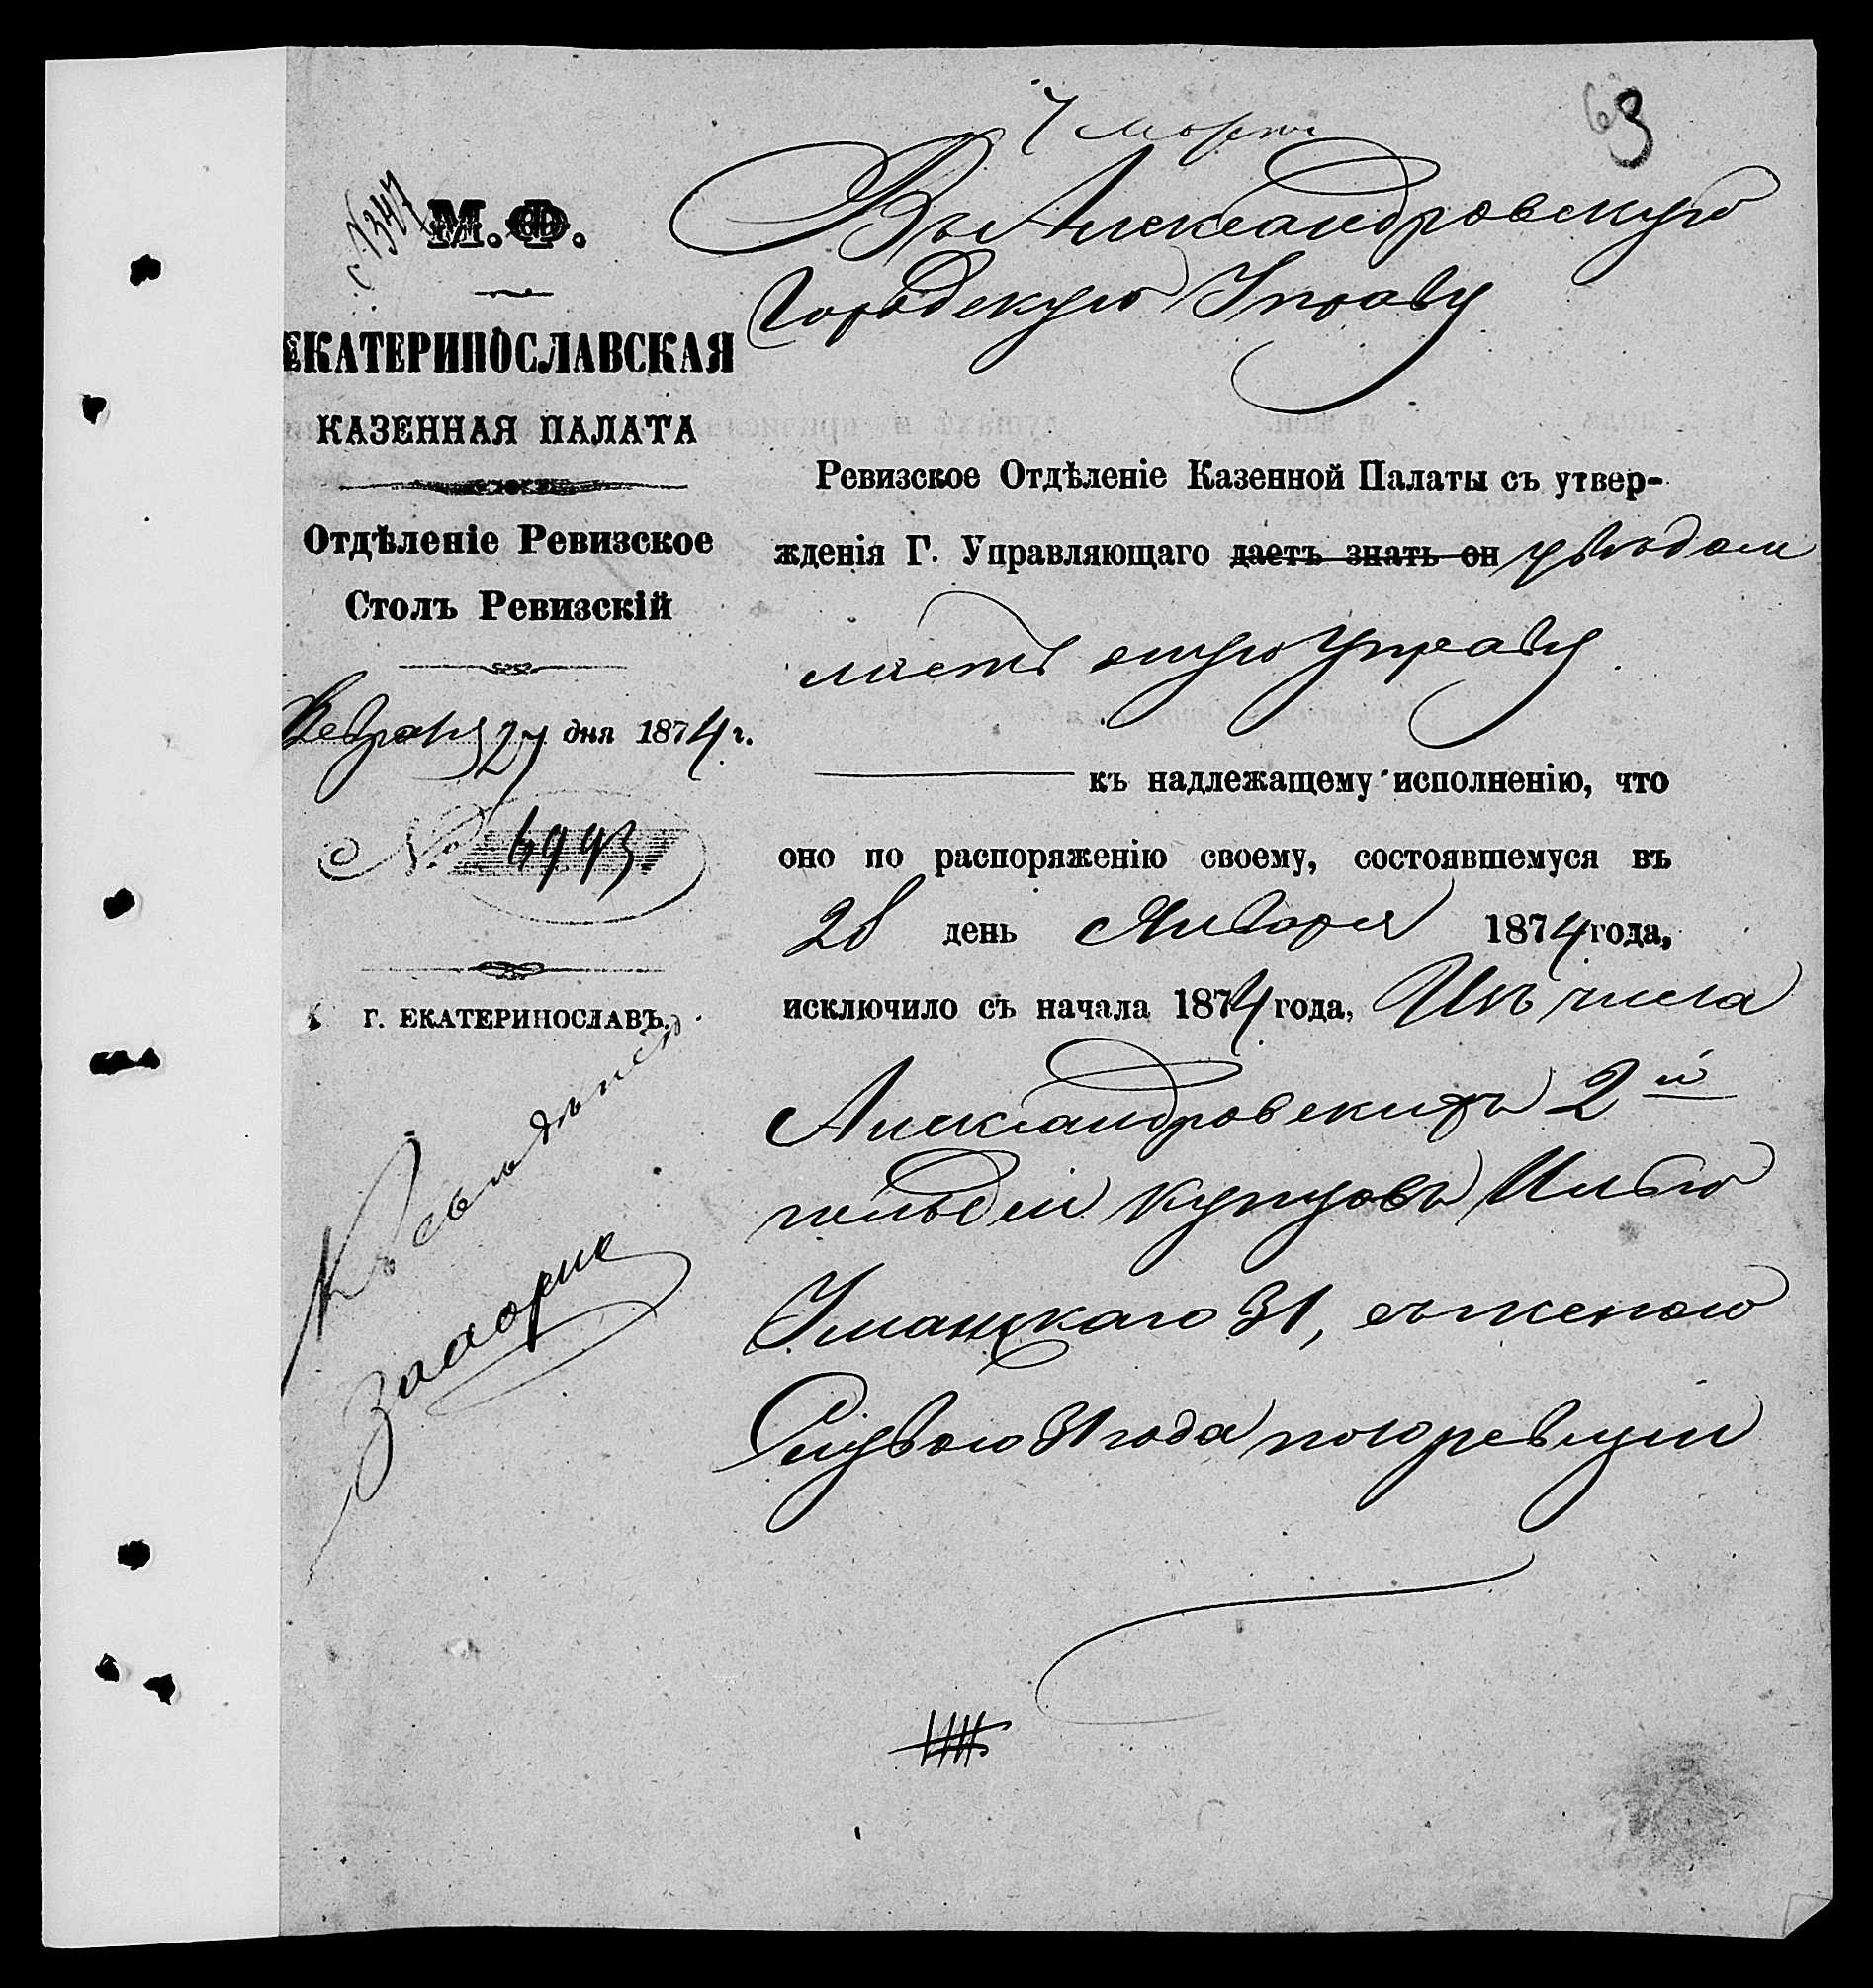 7 марта
63
с. 1347
М.Ф.
ЕКАТЕРИНОСЛАВСКАЯ
КАЗЕННАЯ ПАЛАТА
Отдѣленіе Ревизское
Столъ Ревизскій
Февраля 27 дня 1874 г.
№ 6993
Г. ЕКАТЕРИНОСЛАВЪ.
Къ свѣдѣнію
Въ Александровскую
Городскую Управу
Ревизское Отдѣленіе Казенной Палаты съ утвер-
жденія Г. Управляющаго даетъ знать он увѣдом
ляетъ оную Управу
къ надлежащему исполненію, что
оно по распоряженію своему, состоявшемуся въ
28 день Января 1874 года,
исключило съ начала 1874 года, Изъ числа
Александровскихъ 2й
гильдіи купцовъ Илью
Уманскаго 31, съ женою
31 года по 10 ревизіи